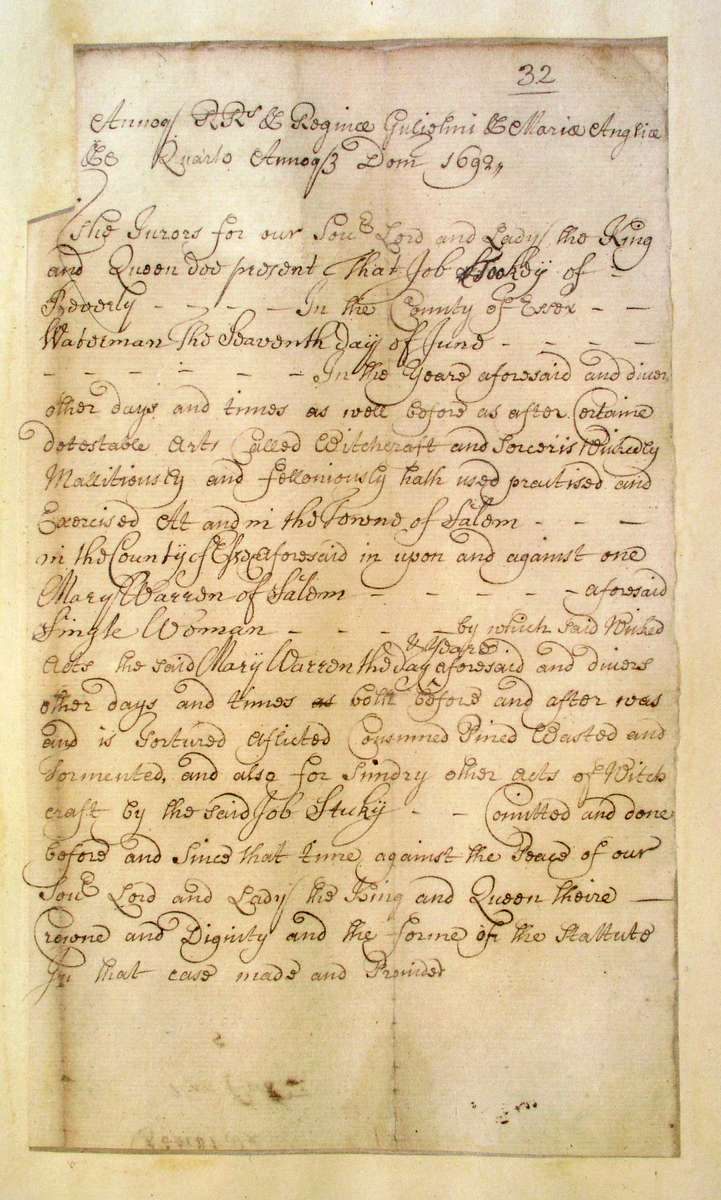 32
Annoq RRs & Reginæ Gulielmi & Mariæ Angliæ
&c Quarto Annoqȝ Dom 1692,,
The Jurors for our Souē Lord and Lady the King
and Queen doe present That Job Tookey of -
Beverly - - - - - In the County of Essex - -
Waterman The Seaventh day of June - - - -
- - - - - - - - In the Yeare aforesaid and divers
other days and times as well before as after Certaine
detestable Arts Called Witchcraft and Sorceris Wickedly
Mallitiously and felloniously hath used practised and
Exercised At and in the Towne of Salem - - -
in the County of Essex aforesaid in upon and against one
Mary Warren of Salem - - - - - - aforesaid
Single Woman - - - - - by which said Wicked
& Yeare
Acts the said Mary Warren the day ^ aforesaid and divers
other days and times as both before and after was
and is Tortured Aflicted Consumed Pined Wasted and
Tormented, and also for Sundry other Acts of Witch
craft by the said Job Stuky - - Comitted and done
before and Since that time against the Peace of our
Souē Lord and Lady the King and Queen theire -
Crowne and Dignity and the forme of the Stattute
In that case made and Provided